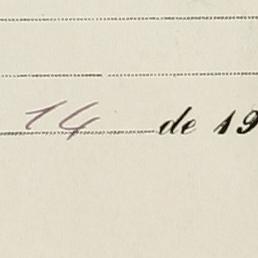 14 de 19